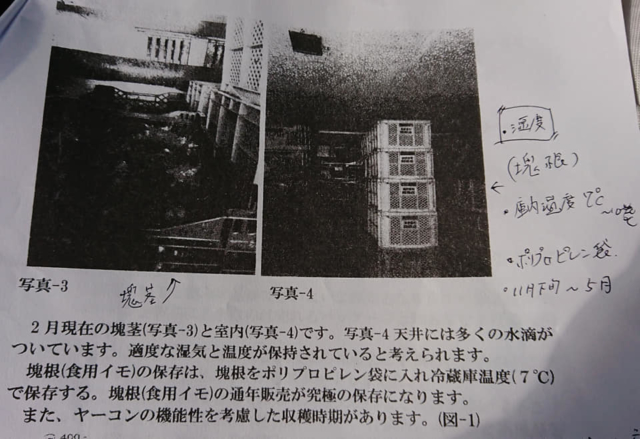 ・湿度
(塊根)
・庫内温度 7℃
・ポリプロピレン袋
・11月下旬〜5月
写真-3
塊茎↑
写真-4
2月現在の塊茎(写真-3)と室内(写真-4)です。写真-4天井には多くの水滴が
ついています。適度な湿気と温度が保持されていると考えられます。
塊根(食用イモ)の保存は、塊根をポリプロピレン袋に入れ冷蔵庫温度(7℃)
で保存する。塊根(食用イモ)の通年販売が究極の保存になります。
また、ヤーコンの機能性を考慮した収穫時期があります。(図-1)